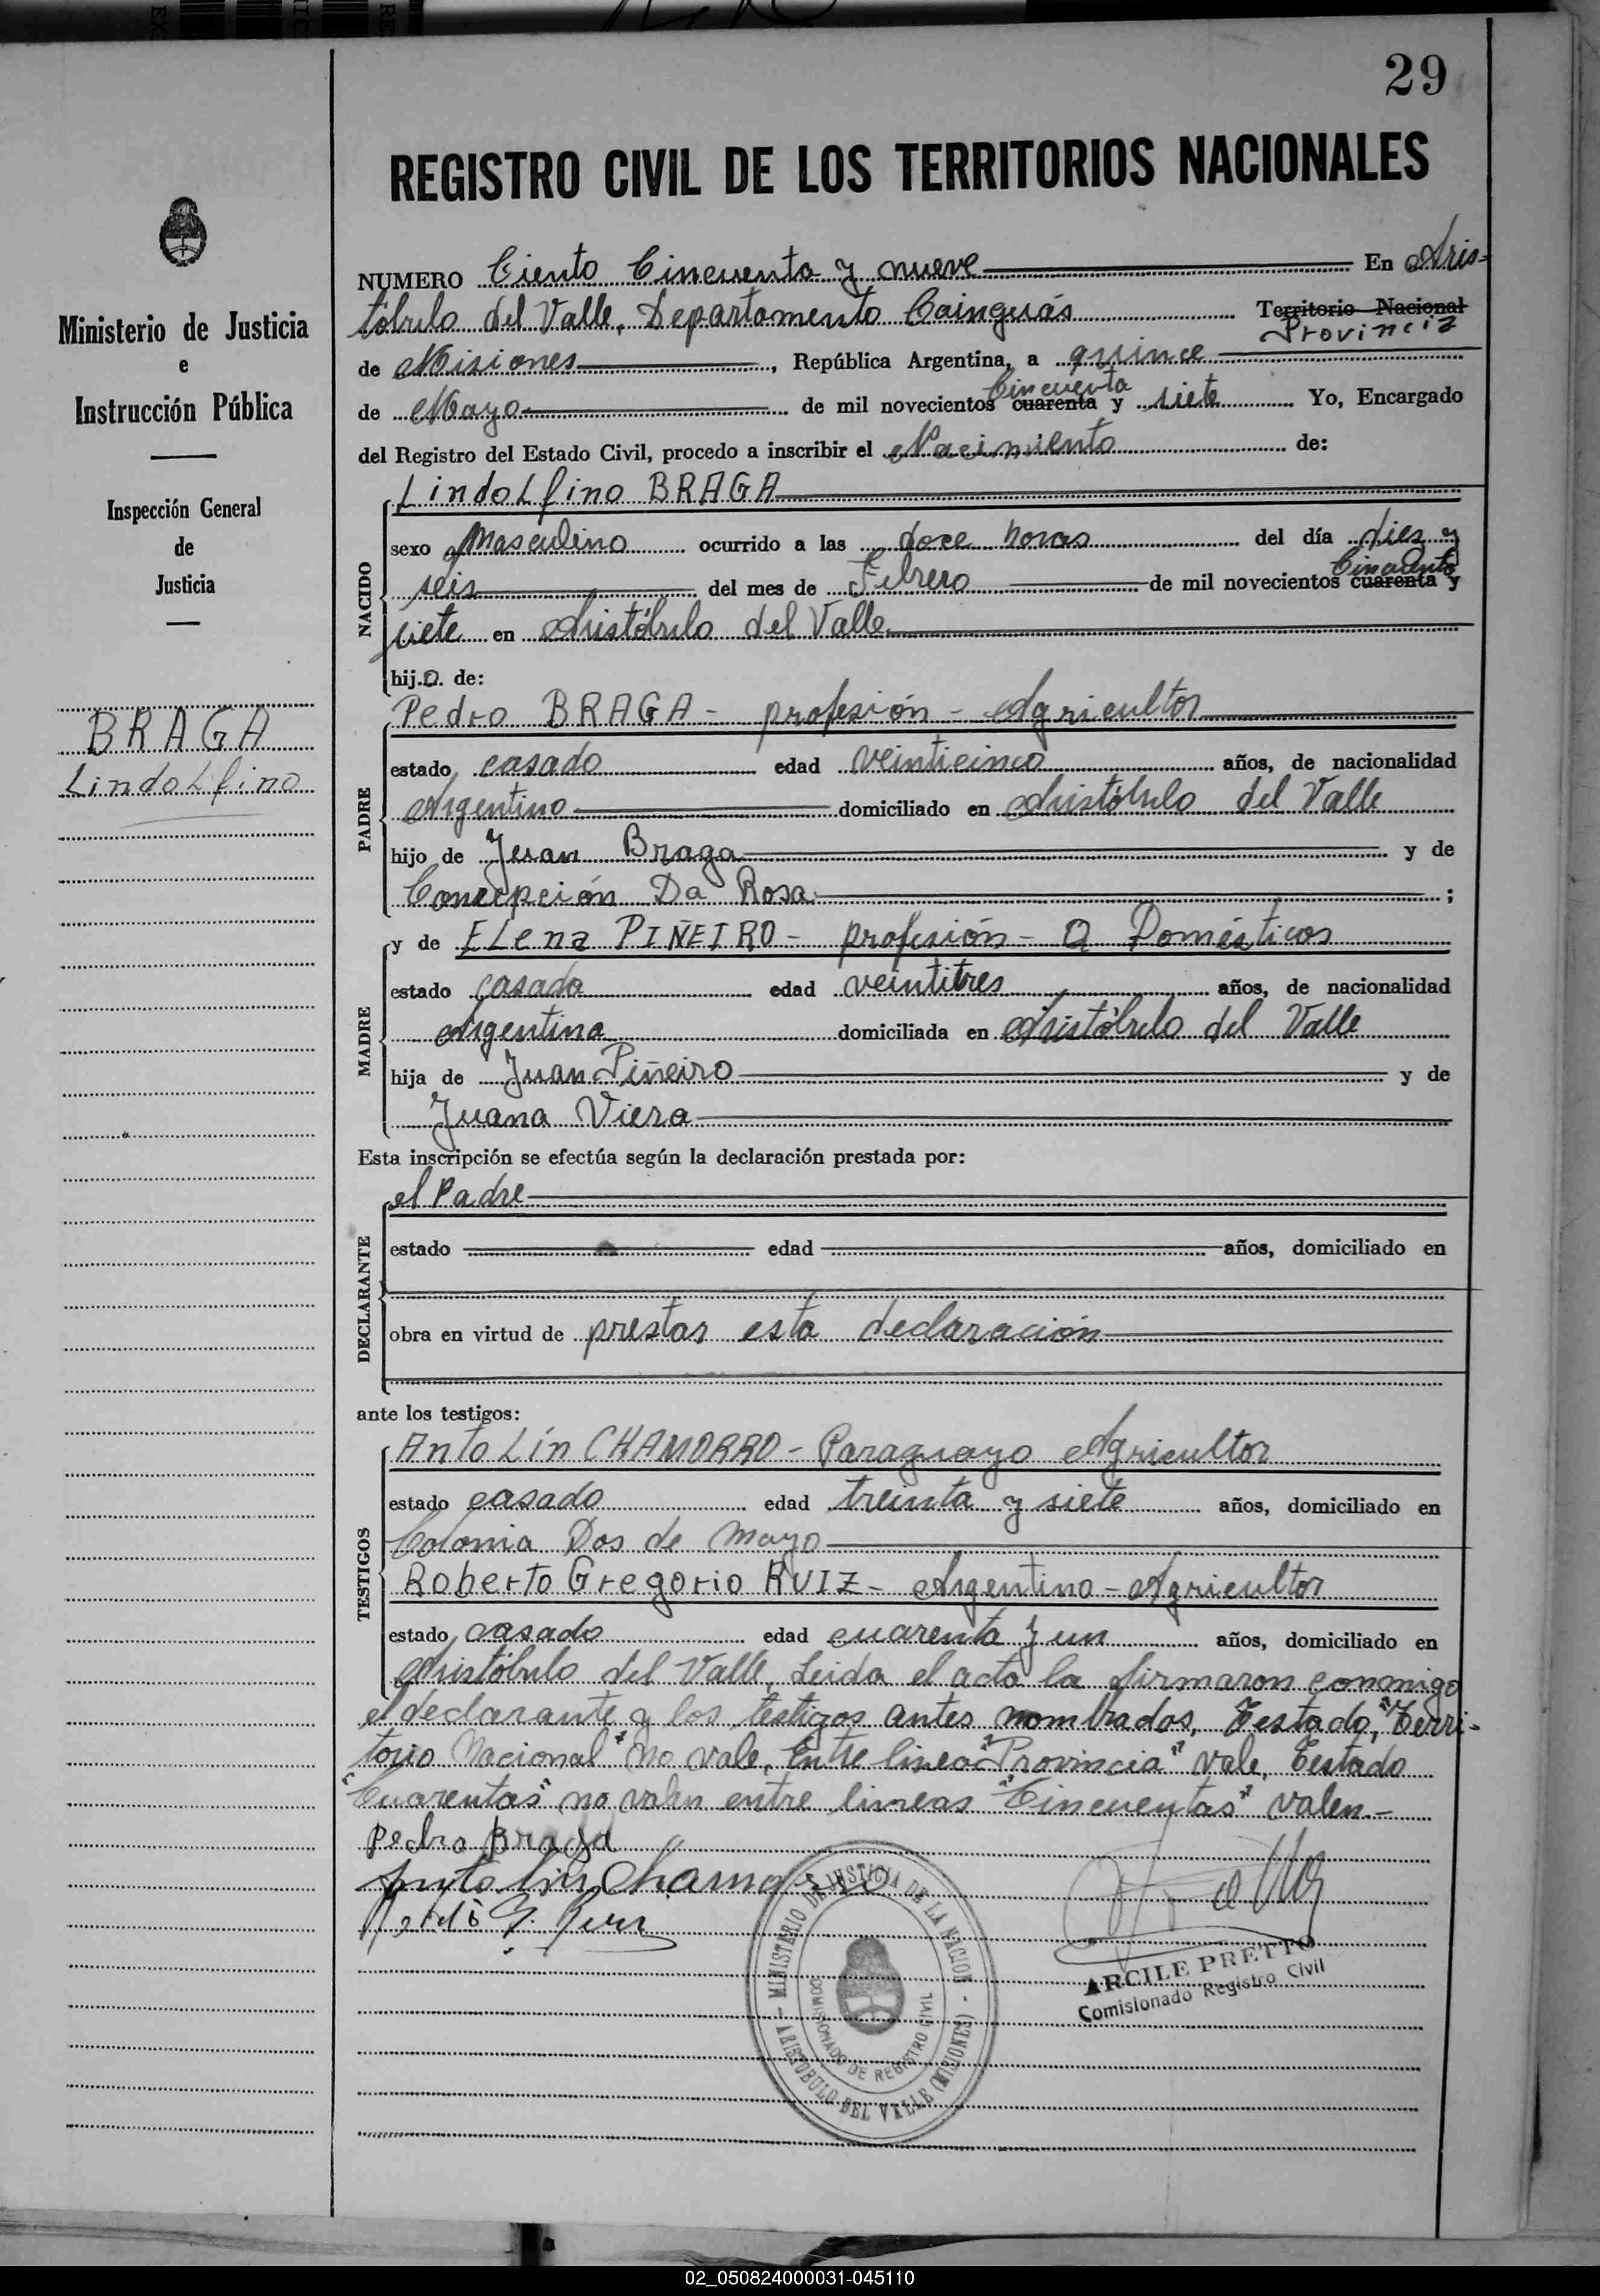 29
REGISTRO CIVIL DE LOS TERRITORIOS NACIONALES
Ministerio de Justicia
e
Instrucción Pública
Inspección General
de
Justicia
BRAGA
Lindolfino
NUMERO Ciento Cincuenta y nueve En Aris-
tóbulo del Valle, Departamento Cainguás Territorio Nacional
Provincia
de Misiones, República Argentina, a quince
Cincuenta
de Mayo de mil novecientos cuarenta y siete Yo, Encargado
del Registro del Estado Civil, procedo a inscribir el Nacimiento de:
NACIDO
Lindolfino BRAGA
sexo Masculino ocurrido a las doce horas del día diez y
Cincuenta
seis del mes de Febrero de mil novecientos cuarenta y
siete en Aristóbulo del Valle
hijo de:
PADRE
Pedro BRAGA - profesión - Agricultor
estado casado edad veinticinco años, de nacionalidad
Argentino domiciliado en Aristóbulo del Valle
hijo de Juan Braga y de
Concepción Da Rosa ;
MADRE
y de Elena PIÑEIRO - profesión - Q Domésticos
estado casada edad veintitres años, de nacionalidad
Argentina domiciliada en Aristóbulo del Valle
hija de Juan Piñeiro y de
Juana Viera
Esta inscripción se efectúa según la declaración prestada por:
DECLARANTE
el Padre
estado edad años, domiciliado en
obra en virtud de prestar esta declaración
ante los testigos:
TESTIGOS
Antolín CHAMORRO - Paraguayo Agricultor
estado casado edad treinta y siete años, domiciliado en
Colonia Dos de Mayo
Roberto Gregorio RUIZ - Argentino - Agricultor
estado casado edad cuarenta y un años, domiciliado en
Aristóbulo del Valle, Leida el acta la firmaron conmigo
el declarante y los testigos antes nombrados, Testado, "Terri-
torio Nacional" no vale, Entre linea "Provincia" vale, Testado
"Cuarentas" no valen entre lineas "Cincuentas" valen.-
Pedro Braga
Antolin Chamorro
G. Ruiz
MINISTERIO DE JUSTICIA DE LA NACION
COMISIONADO DE REGISTRO CIVIL
ARISTOBULO DEL VALLE (MISIONES)
ARCILE PRETTO
Comisionado Registro Civil
02_050824000031-045110